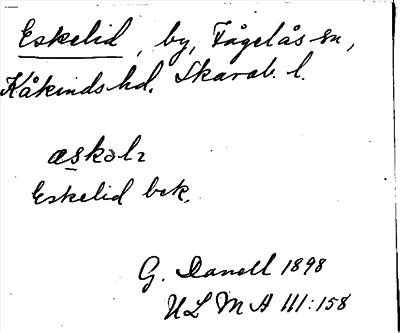 Eskelid, by, Fågelås sn,
Kåkinds hd. Skarab. l.
æskəlı
Eskelid bek.
G. Danell 1898
ULMA III:158